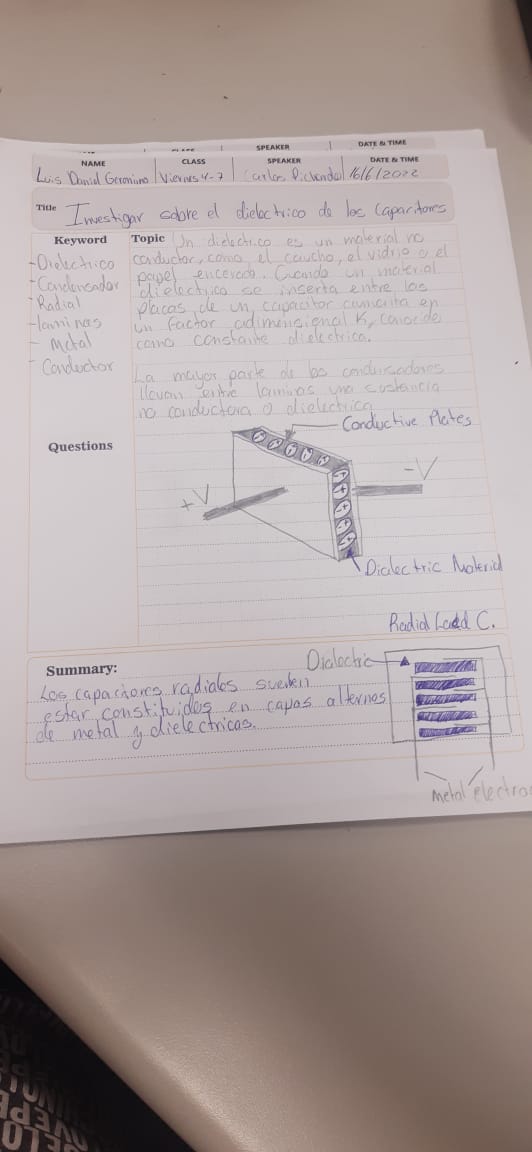 SPEAKER DATE & TIME
NAME CLASS SPEAKER DATE & TIME
Luis Daniel Geronimo Viernes 4-7 Carlos Pichardo 16/6/2022
Title Investigar sobre el dielectrico de los Capacitores
Keyword
-Dielectrico
-Condensador
-Radial
-laminas
- Metal
- Conductor
Topic Un dielectrico es un material no
conductor, como el caucho, el vidrio o el
papel encerado. Cuando un material
dielectrico se inserta entre las
placas de un capacitor aumenta en
un factor adimensional K, conocido
como constante dielectrica.
La mayor parte de los condensadores
llevan entre laminas una sustancia
no conductora o dielectrica
Questions
Conductive Plates
+V
-V
Dielectric Material
Radial Lead C.
Summary:
Los capacitores radiales suelen
estar constituidos en capas alternos
de metal y dielectricas.
Dielectric
metal electro